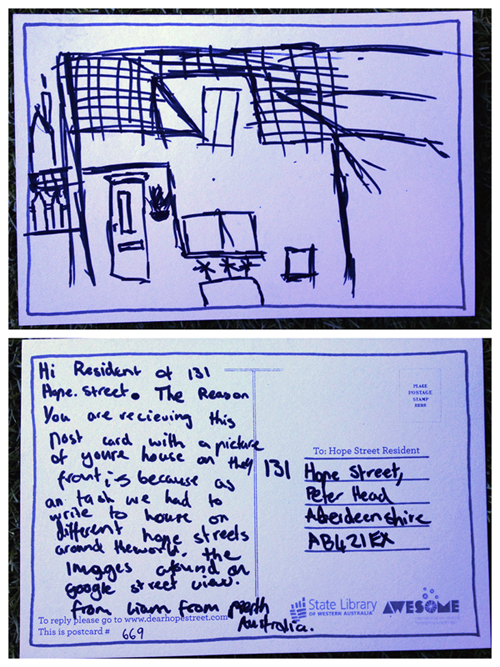 Hi Resident of 131
Hope. Street. The Reason
You are recieving this
Post card with a picture
of youre house on the
front is because as
an task we had to
write to house on
different hope streets
around the world. the
Images afound on
Google street view.
from Liam from Perth
Australia.
To reply please go to www.dearhopestreet.com
This is postcard # 669
PLACE
POSTAGE
STAMP
HERE
To: Hope Street Resident
131 Hope Street,
Peter Head
Aberdeenshire
AB421EX
State Library
OF WESTERN AUSTRALIA
AWESOME